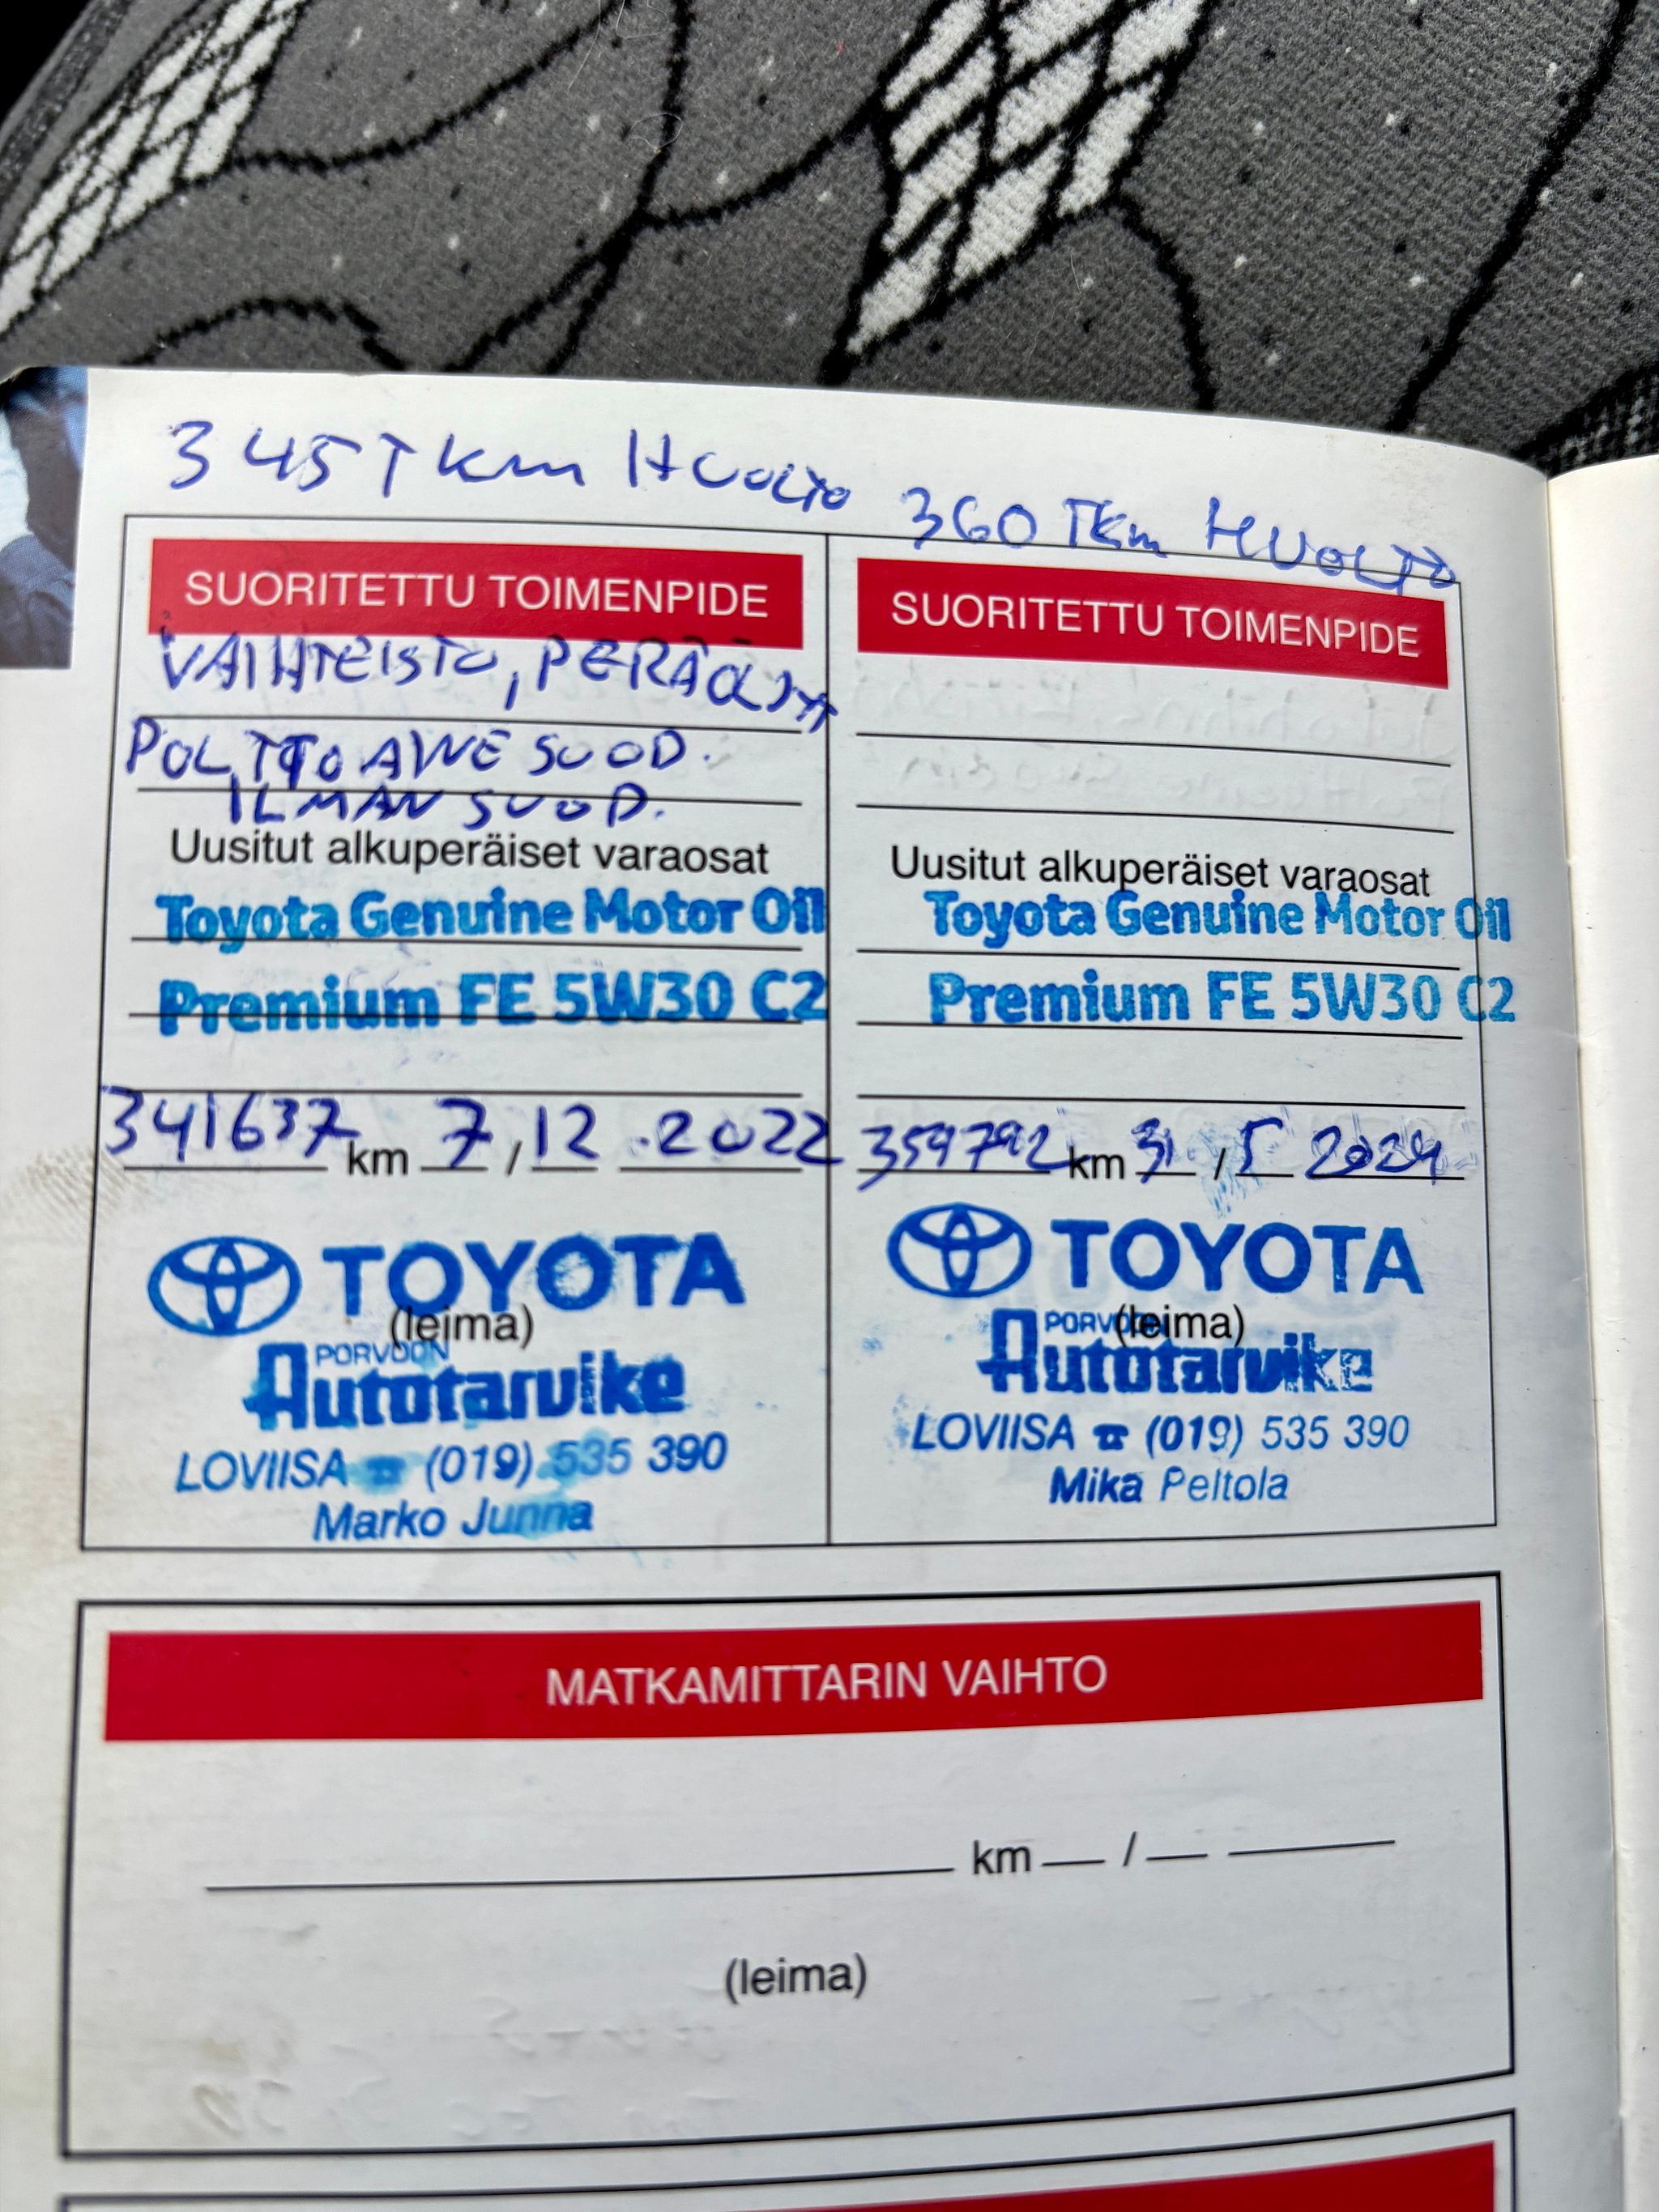 345 Tkm HUOLTO
SUORITETTU TOIMENPIDE
VAIHTEISTO, PERÄÖLJYT
POLTTOAINE SUOD.
ILMAN SUOD.
Uusitut alkuperäiset varaosat
Toyota Genuine Motor Oil
Premium FE 5W30 C2
341637 km 7 / 12 .2022
TOYOTA
(leima)
PORVOON
Autotarvike
LOVIISA ☎ (019) 535 390
Marko Junna
360 Tkm HUOLTO
SUORITETTU TOIMENPIDE
Uusitut alkuperäiset varaosat
Toyota Genuine Motor Oil
Premium FE 5W30 C2
359792 km 31 / 5 2024
TOYOTA
(leima)
PORVOON
Autotarvike
LOVIISA ☎ (019) 535 390
Mika Peltola
MATKAMITTARIN VAIHTO
km / 
(leima)